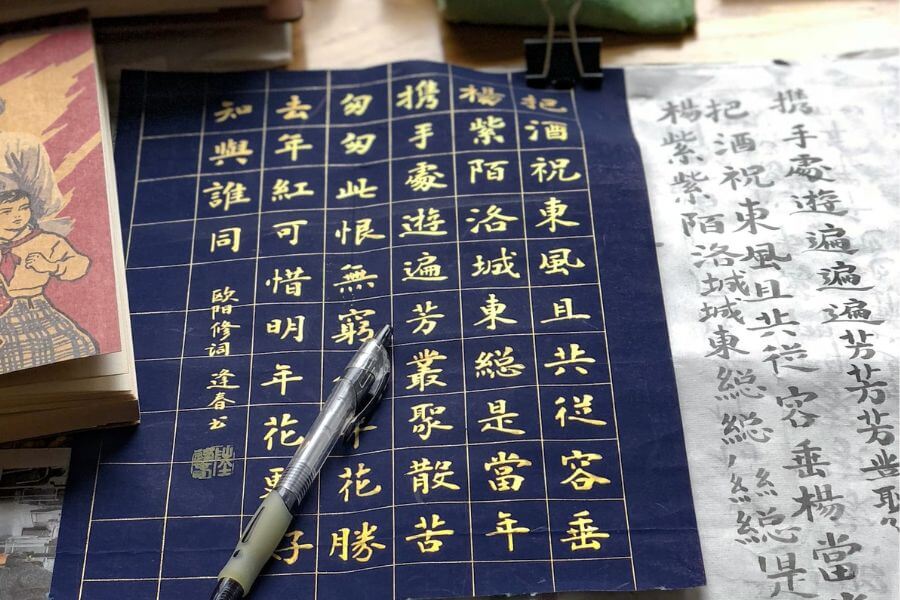 把酒祝東風且共從容垂
楊紫陌洛城東総是當年
携手處遊遍芳叢聚散苦
匆匆此恨無窮年花勝
去年紅可惜明年花更好
知與誰同
欧阳修词 逢春书
携手處遊遍遍遍芳芳芳
把酒祝東風且共從容垂楊當
楊紫紫陌洛城城東総総総是